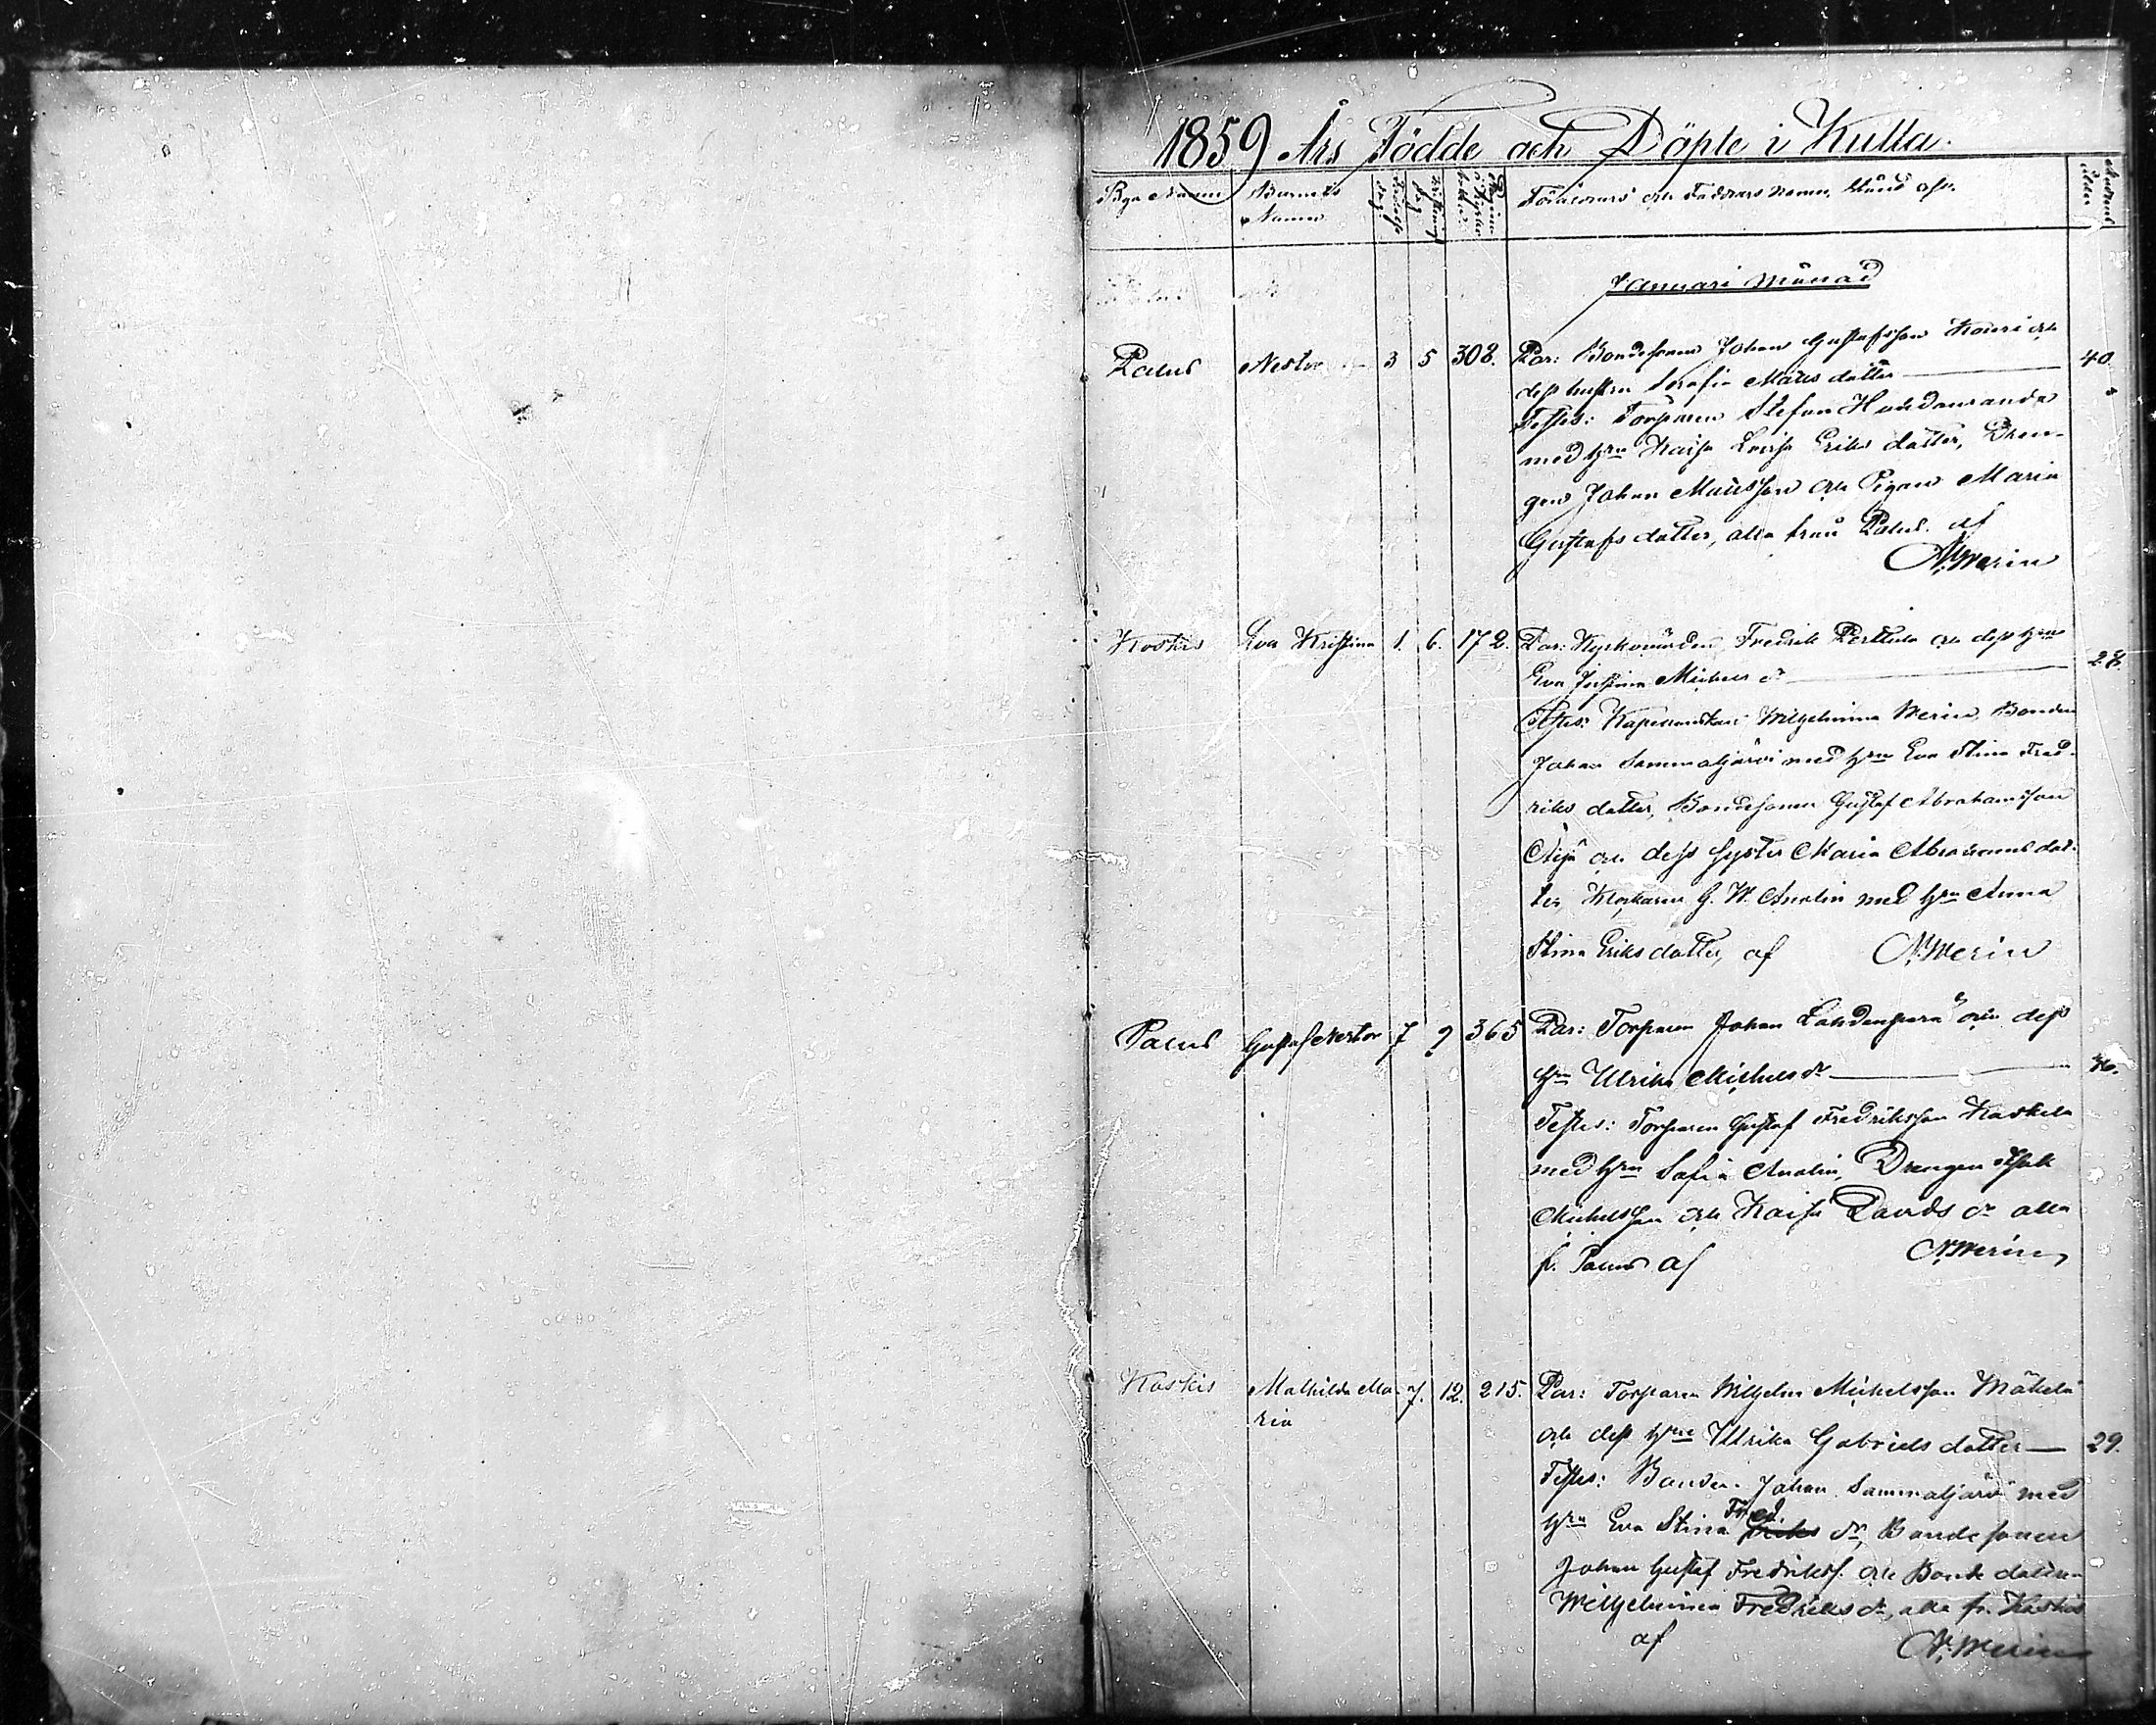 1859 Års Födde och Döpte i Kulla.
Bya Namn Barnets Namn Födelse dag Kristnings dag Pagina i Kyrko boken Föräldrars och Faddrars Namn, Stånd osv. Modrens ålder
Januari Månad
Palus Nestor 3 5 308. Par: Bondesonen Johan Gustafsson Kauri och 40
dess hustru Serafia Matts dotter
Testes: Torparen Stefan Hondanranda
med Hru Kaisa Lovisa Eriks dotter, Dren-
gen Johan Mattsson och Pigan Maria
Gustafs dotter, alla från Palus. af
N. Merin
Koskis Eva Kristina 1. 6. 172. Par: Kyrkovärden Fredrik Perttula och dess Hru 28.
Eva Justina Michels dr
Testes: Kapellanskan Wilhelmina Merin, Bonden
Johan Sammaljärvi med Hru Eva Stina Fred-
riks dotter, Bondesonen Gustaf Abrahamsson
Äijä och dess Syster Maria Abrahams dot-
ter, Klockaren G. W. Analin med Hru Anna
Stina Eriksdotter, af N. Merin
Palus Gustaf Nestor 7 9 365 Par: Torparen Johan Lahdenperä och dess
Hru Ulrika Michels dr 36.
Testes: Torparen Gustaf Fredriksson Kaskela
med Hru Sofia Analin, Drengen Isak
Michelsson och Kaisa Davids dr alla
fr. Palus af N. Merin
Koskis Mathilda Ma- 7. 12. 215. Par: Torparen Wilhelm Michelsson Mäkelä
ria
och dess Hru Ulrika Gabriels dotter 29.
Testes: Bonden Johan Sammaljärvi med
Hru Eva Stina Fred. riks dr, Bondesonen
Johan Gustaf Fredrikss. och Bonde dottren
Wilhelmina Fredriks dr, alla fr. Koskis
af N. Merin